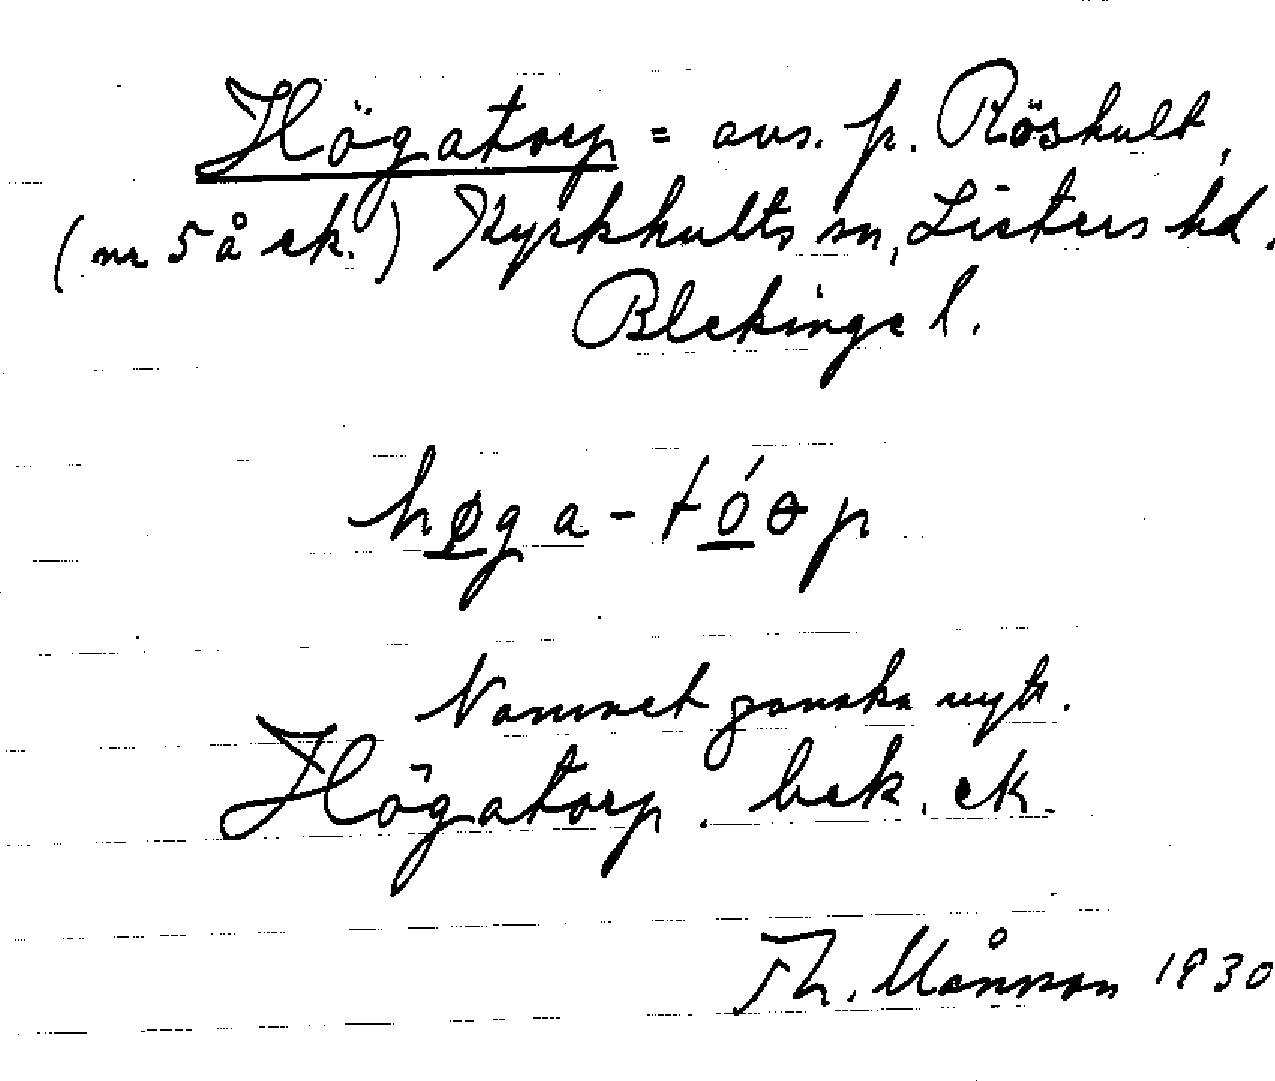 Högatorp = avs. p. Röshult,
(nr 5 å ek.) Kyrkhults sn, Listers hd.
Blekinge l.
høga-tóɵp
Namnet ganska nytt.
Högatorp. bek. ek.
Th. Månsson 1930